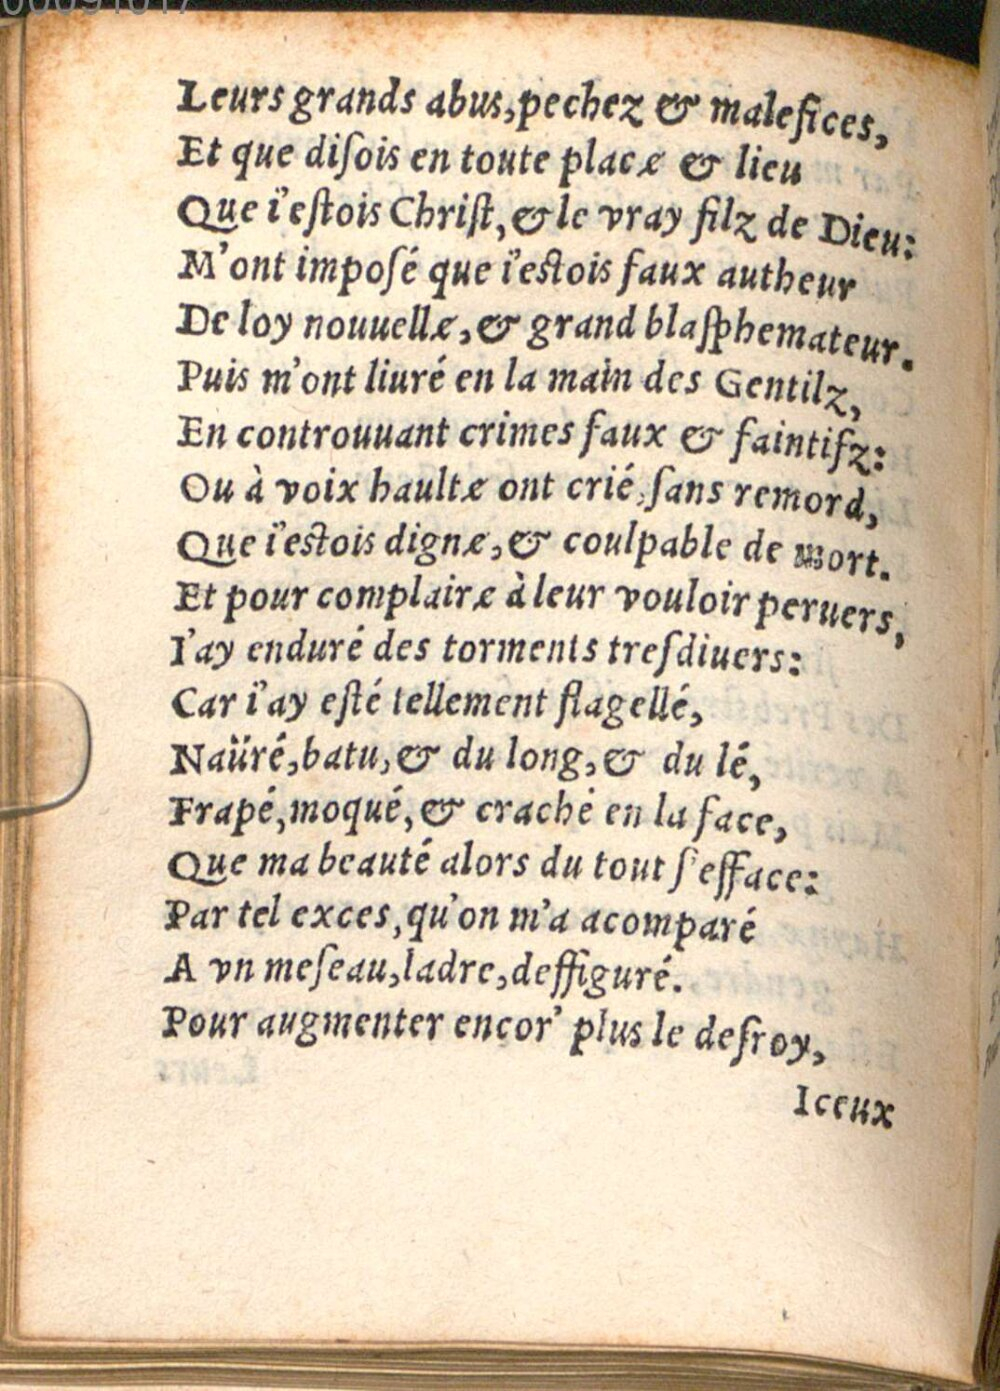 Leurs grands abus, pechez & malefices,
Et que diſois en toute place & lieu
Que i'eſtois Chriſt, & le vray filz de Dieu:
M'ont impoſé que i'estois faux autheur
De loy nouuelle, & grand blaſphemateur.
Puis m'ont liuré en la main des Gentilz,
En controuuant crimes faux & faintifz:
Ou à voix haulte ont crié, ſans remord,
Que i'estois digne, & coulpable de mort.
Et pour complaire à leur vouloir peruers,
I'ay enduré des torments treſdiuers:
Car i'ay eſté tellement flagellé,
Naüré, batu, & du long, & du lé,
Frapé, moqué, & craché en la face,
Que ma beauté alors du tout ſ'efface:
Par tel exces, qu'on m'a acomparé
A vn meſeau, ladre, deffiguré.
Pour augmenter encor' plus le deſroy,
Iceux